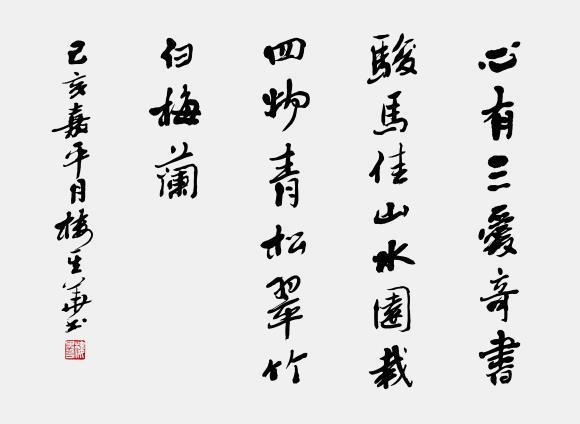 心有三爱奇書
駿馬佳山水園栽
四物青松翠竹
白梅蘭
己亥嘉平月梅